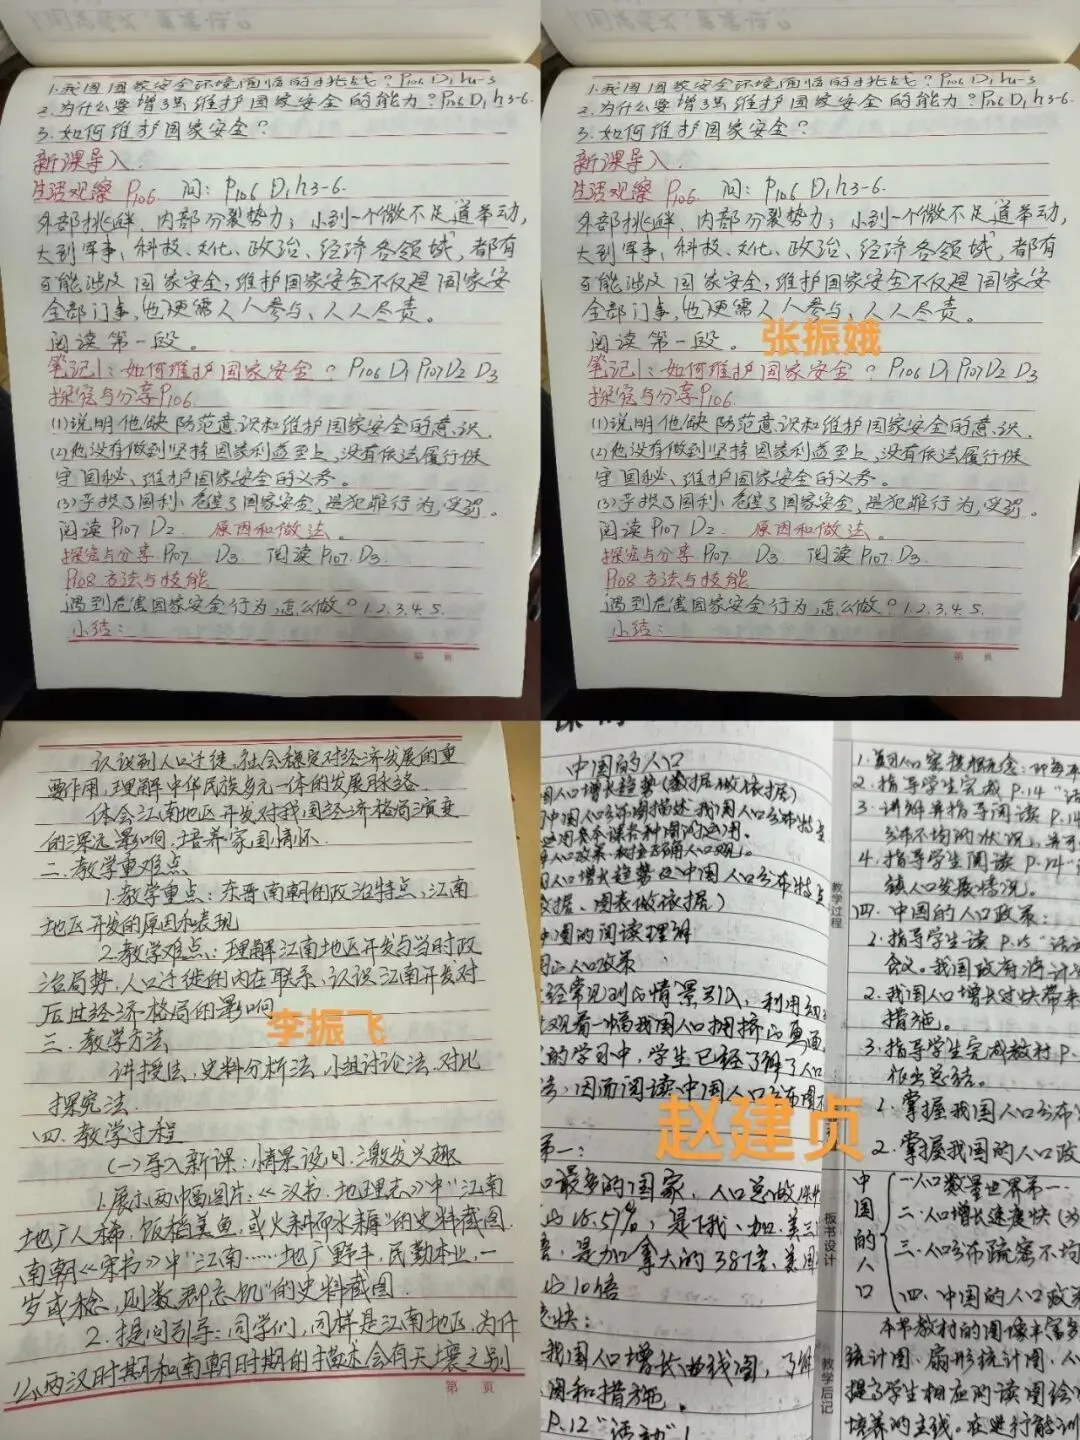 1.我国国家安全环境面临的挑战？P106 D1 h4-5
2.为什么要增强维护国家安全的能力？P106 D1 h3-6.
3.如何维护国家安全？
新课导入.
生活观察 P106. 问：P106 D1 h3-6.
外部挑衅，内部分裂势力；小到一个微不足道举动，
大到军事，科技、文化、政治、经济各领域，都有
可能涉及国家安全，维护国家安全不仅是国家安
全部门事，也更需人人参与、人人尽责。
阅读第一段。
笔记1：如何维护国家安全？P106 D1 P107 D2 D3
探究与分享P106.
(1)说明他缺防范意识和维护国家安全的意识.
(2)他没有做到坚持国家利益至上，没有依法履行保
守国秘、维护国家安全的义务。
(3)予损了国利、危害了国家安全，是犯罪行为，受罚。
阅读P107 D2. 原因和做法。
探究与分享P107 D3. 阅读P107.D3.
P108 方法与技能
遇到危害国家安全行为，怎么做？1.2.3.4.5.
小结：
第 页
1.我国国家安全环境面临的挑战？P106 D1 h4-5
2.为什么要增强维护国家安全的能力？P106 D1 h3-6.
3.如何维护国家安全？
新课导入.
生活观察 P106. 问：P106 D1 h3-6.
外部挑衅，内部分裂势力；小到一个微不足道举动，
大到军事，科技、文化、政治、经济各领域，都有
可能涉及国家安全，维护国家安全不仅是国家安
全部门事，也更需人人参与、人人尽责。
阅读第一段。
张振娥
笔记1：如何维护国家安全？P106 D1 P107 D2 D3
探究与分享P106.
(1)说明他缺防范意识和维护国家安全的意识.
(2)他没有做到坚持国家利益至上，没有依法履行保
守国秘、维护国家安全的义务。
(3)予损了国利、危害了国家安全，是犯罪行为，受罚。
阅读P107 D2. 原因和做法。
探究与分享P107 D3. 阅读P107.D3.
P108 方法与技能
遇到危害国家安全行为，怎么做？1.2.3.4.5.
小结：
第 页
认识到人口迁徙、社会稳定对经济发展的重
要作用，理解中华民族多元一体的发展脉络.
体会江南地区开发对我国经济格局演变
的深远影响，培养家国情怀.
二.教学重难点
1.教学重点：东晋南朝的政治特点、江南
地区开发的原因和表现
2.教学难点：理解江南地区开发与当时政
治局势、人口迁徙的内在联系、认识江南开发对
后世经济格局的影响
李振飞
三.教学方法
讲授法、史料分析法、小组讨论法、对比
探究法.
四.教学过程
(一)导入新课：情景设问.激发兴趣
1.展示两幅图片：《汉书·地理志》中“江南
地广人稀，饭稻羹鱼，或火耕而水耨”的史料截图.
南朝《宋书》中“江南……地广野丰，民勤本业，一
岁或稔，则数郡忘饥”的史料截图.
2.提问引导：同学们，同样是江南地区，为什
么两汉时期和南朝时期的描述会有天壤之别
第 页
中国的人口
国人口增长趋势（数据做依据）
中国人口分布图描述我国人口分布特点
人口增长趋势及中国人口分布特点
数据、图表做依据）
中国的阅读理解
人口政策
经常见到的情景引入，利用
观看一幅我国人口拥挤的画面
的学习中，学生已经了解了人口
法，因而阅读中国人口分布图
赵建贞
第一：
口最多的国家，人口总做
是加拿大的38.7倍、美国
10倍
快：
我国人口增长曲线图，了解
图和措施.
P.12“活动”1
教学过程
板书设计
教学后记
2.指导学生完成 P.14“活
3.讲解并指导阅读 P.14
分布不均的状况，并可
4.指导学生阅读 P.14“
镇人口发展情况。
四.中国的人口政策：
1.指导学生读 P.15“活
含义。我国政府将计
2.我国人口增长过快带来
措施。
3.指导学生完成教材P.
作出总结。
1.掌握我国人口分布
2.掌握我国的人口政
中国的人口
一.人口数量世界第一
二.人口增长速度快
三.人口分布疏密不均
四.中国的人口政策
本节教材的图像丰富多
统计图、扇形统计图、人
提高学生相应的读图绘
培养的主线。在进行